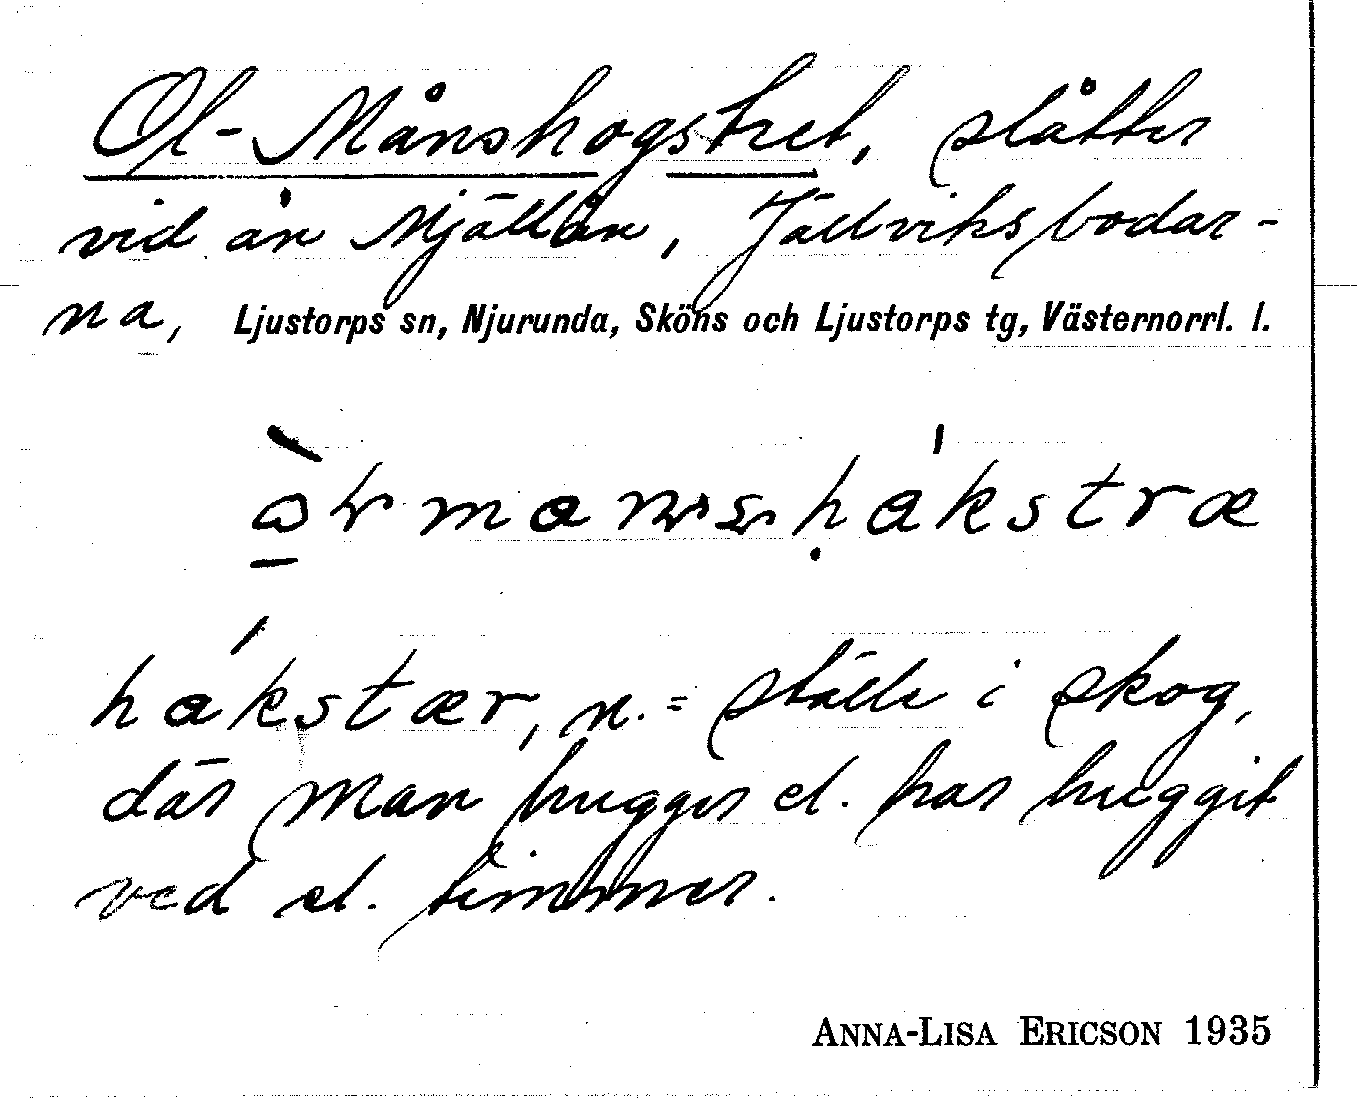 Ol-Månshogstret, slåtter
vid ån Mjällån, Jällviksbodar-
na, Ljustorps sn, Njurunda, Sköns och Ljustorps tg, Västernorrl. l.
hákstær, n. = ställe i skog,
där man hugger el. har huggit
ved el. timmer.
ANNA-LISA ERICSON 1935